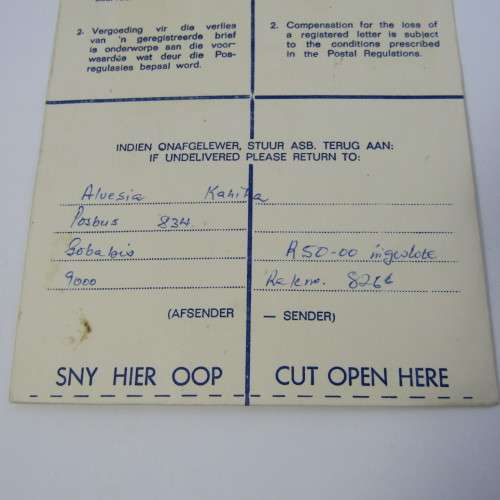 2. Vergoeding vir die verlies
van 'n geregistreerde brief
is onderworpe aan die voor-
waardes wat deur die Pos-
regulasies bepaal word.
2. Compensation for the loss of
a registered letter is subject
to the conditions prescribed
in the Postal Regulations.
INDIEN ONAFGELEWER, STUUR ASB. TERUG AAN:
IF UNDELIVERED PLEASE RETURN TO:
Aluesia Kahika
Posbus 834
Gobabis R50-00 ingeslote
9000 Rek no. 8266
(AFSENDER — SENDER)
SNY HIER OOP CUT OPEN HERE